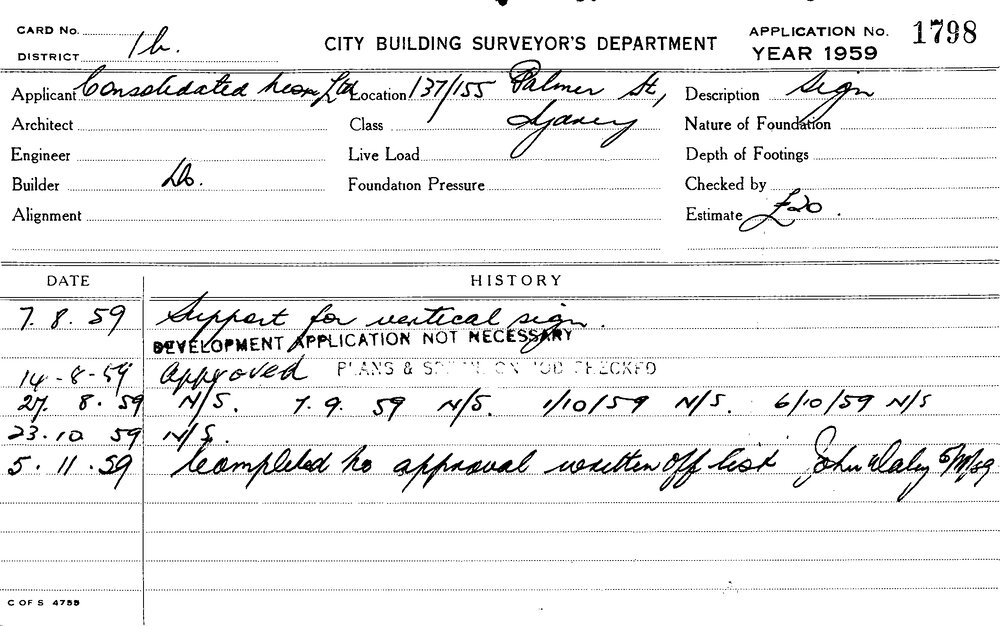 CARD No.
DISTRICT 1b.
CITY BUILDING SURVEYOR'S DEPARTMENT
APPLICATION No. 1798
YEAR 1959
Applicant Consolidated Neon Ltd Location 137/155 Palmer St, Description Sign
Architect Class Sydney Nature of Foundation
Engineer Live Load Depth of Footings
Builder Do. Foundation Pressure Checked by
Alignment Estimate £20.
DATE HISTORY
7. 8. 59 Support for vertical sign.
DEVELOPMENT APPLICATION NOT NECESSARY
14-8-59 Approved PLANS & ON JOB CHECKED
27. 8. 59 N/S. 7. 9. 59 N/S. 1/10/59 N/S. 6/10/59 N/S
23.10 59 N/S.
5. 11. 59 Completed to approval written off list John Daley 5/11/59
C OF S 4755